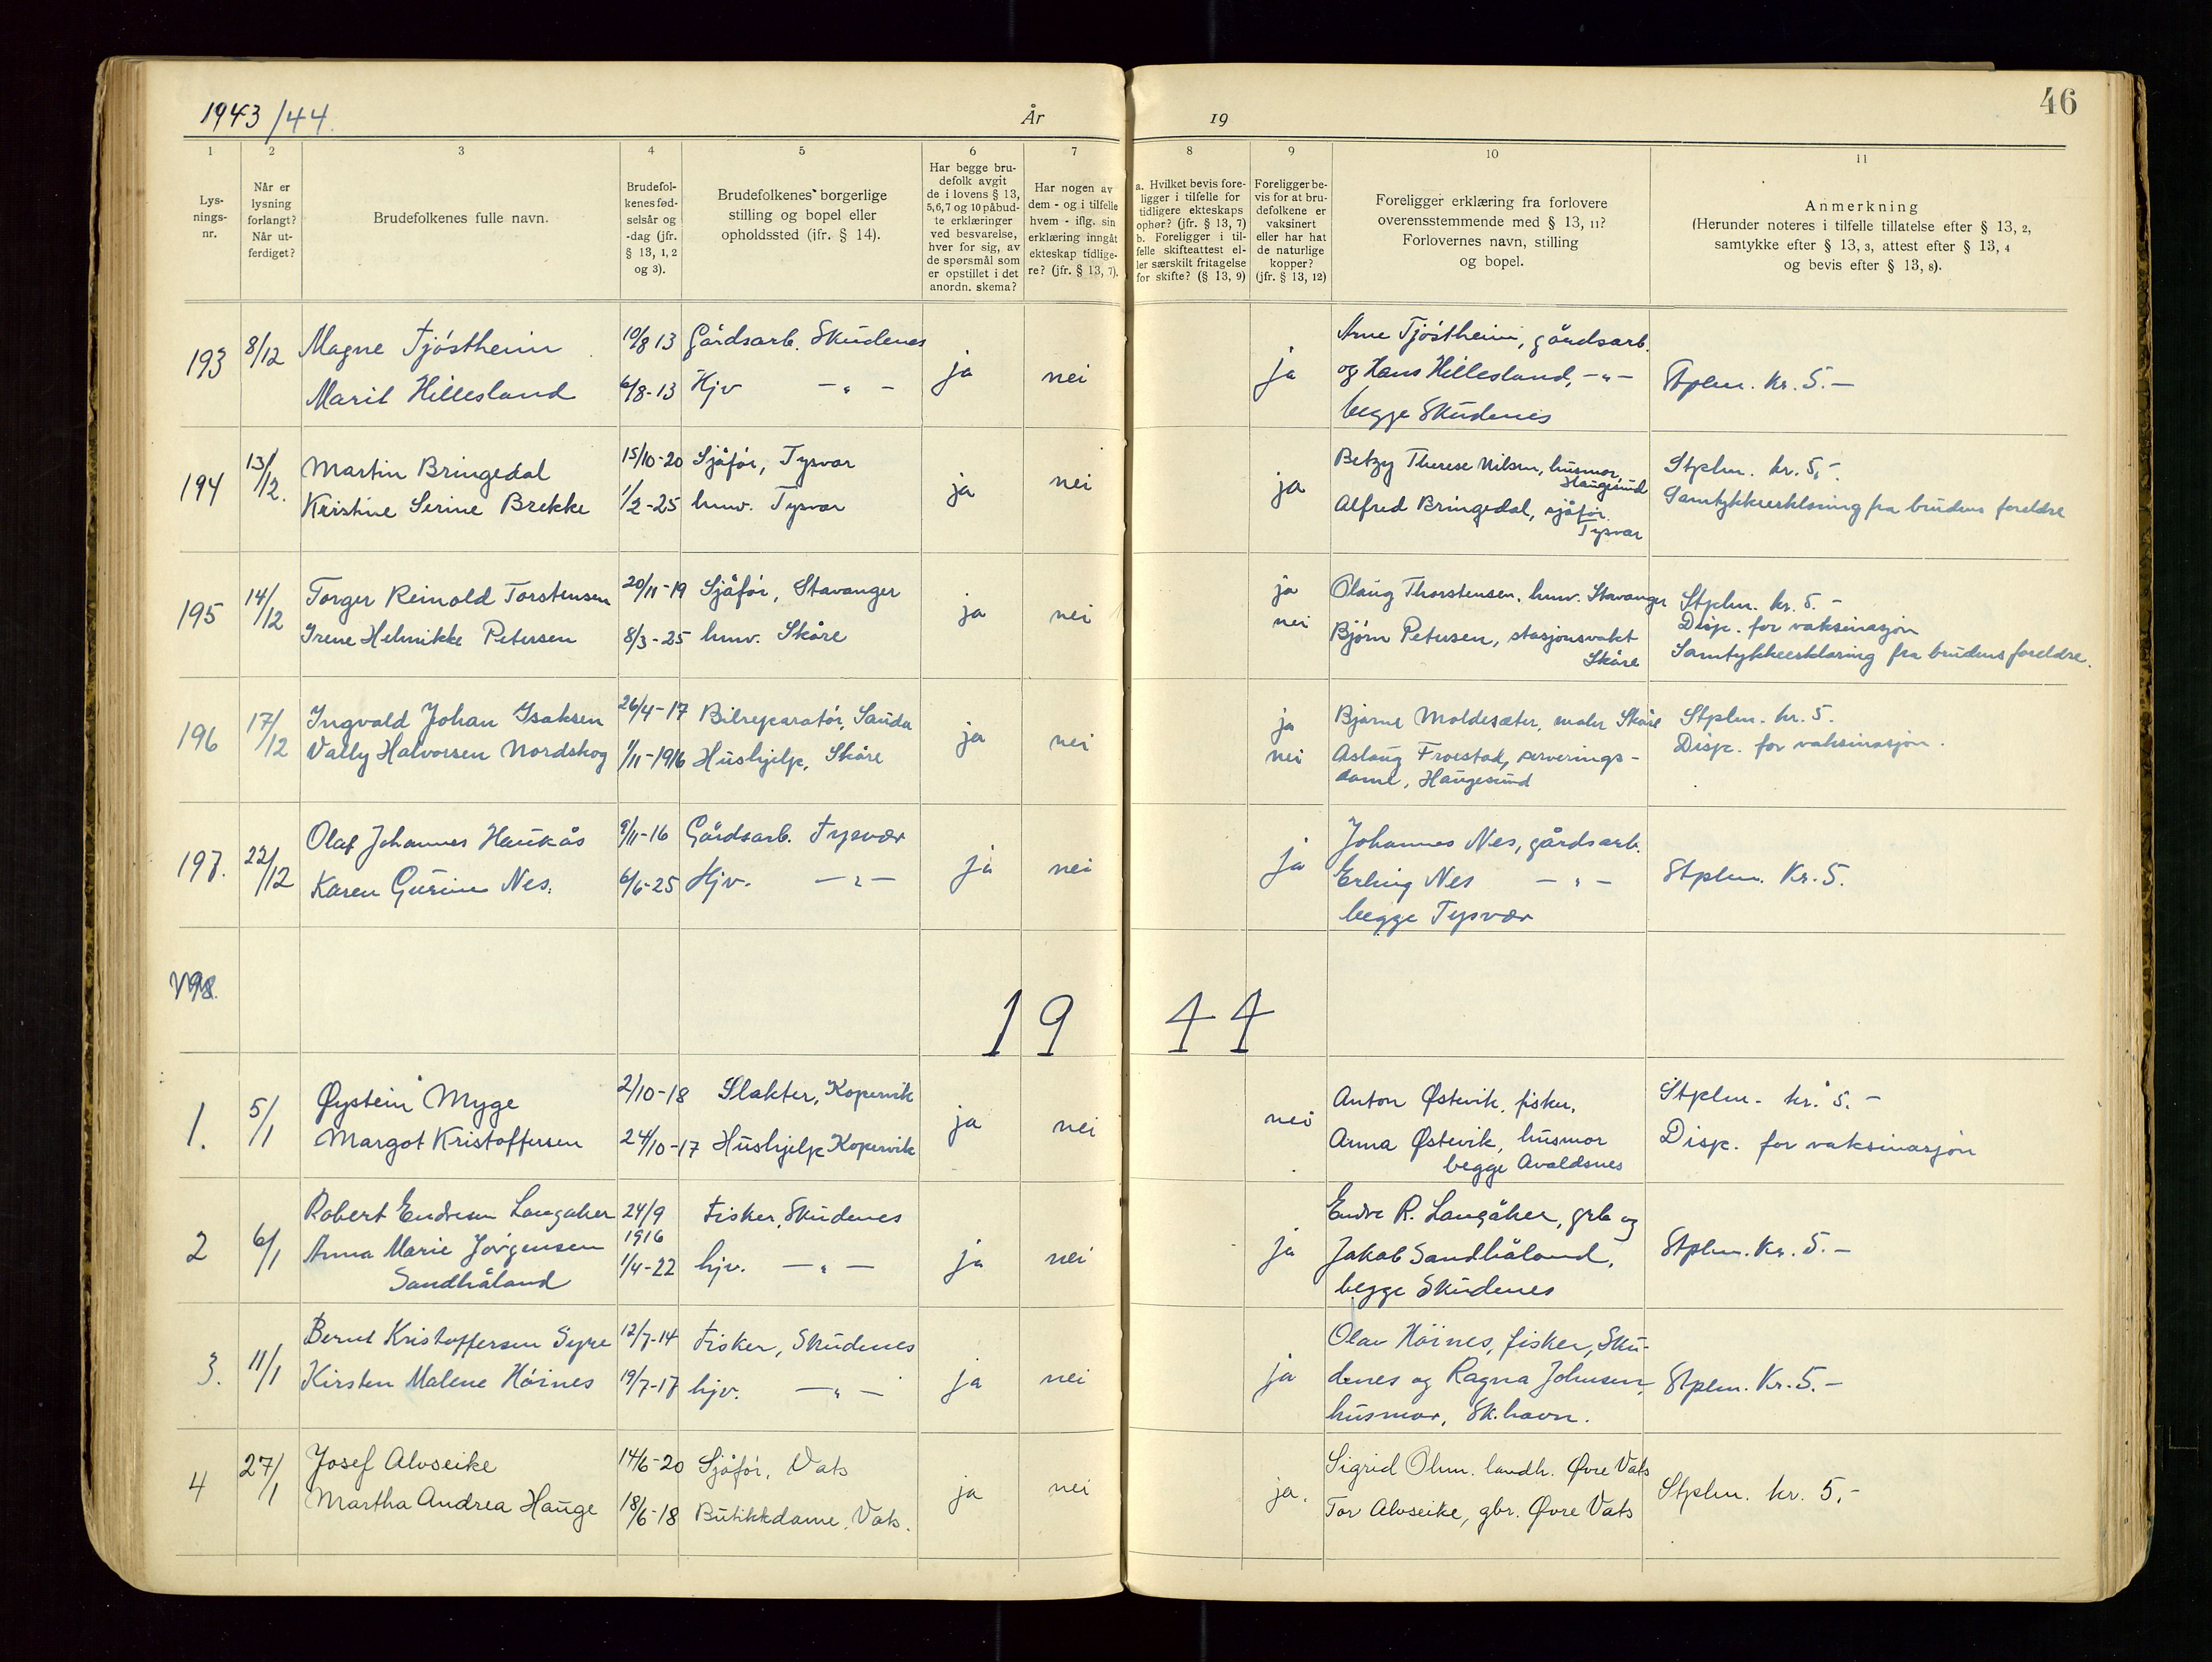 1943/44.
År
19
46
1
2
3
4
5
6
7
8
9
10
11
Lys-
nings-
nr.
Når er
lysning
forlangt?
Når ut-
ferdiget?
Brudefolkenes fulle navn.
Brudefol-
kenes fød-
selsår og
-dag (jfr.
§ 13, 1, 2
og 3).
Brudefolkenes borgerlige
stilling og bopel eller
opholdssted (jfr. § 14).
Har begge bru-
defolk avgit
de i lovens § 13,
5,6,7 og 10 påbud-
te erklæringer
ved besvarelse,
hver for sig, av
de spørsmål som
er opstillet i det
anordn. skema?
Har nogen av
dem - og i tilfelle
hvem - iflg. sin
erklæring inngåt
ekteskap tidlige-
re? (jfr. § 13, 7).
a. Hvilket bevis fore-
ligger i tilfelle for
tidligere ekteskaps
ophør? (jfr. § 13, 7)
b. Foreligger i til-
felle skifteattest el-
ler særskilt fritagelse
for skifte? (§ 13, 9)
Foreligger be-
vis for at bru-
defolkene er
vaksinert
eller har hat
de naturlige
kopper?
(jfr. § 13, 12)
Foreligger erklæring fra forlovere
overensstemmende med § 13, 11?
Forlovernes navn, stilling
og bopel.
Anmerkning
(Herunder noteres i tilfelle tillatelse efter § 13, 2,
samtykke efter § 13, 3, attest efter § 13, 4
og bevis efter § 13, 8).
193
8/12
Magne Tjøstheim
Marit Hillesland
10/8 13
6/8-13
Gårdsarb. Skudenes
Hjv — " —
ja
nei
ja
Arne Tjøstheim, gårdsarb.
og Hans Hillesland, — " —
begge Skudenes
Stplm. Kr. 5.—
194
13/12.
Martin Bringedal
Kristine Serine Brekke
15/10-20
1/2-25
Sjåfør, Tysvær
hmv. Tysvær
ja
nei
ja
Betzy Therese Nilsen, husmor,
Haugesund
Alfred Bringedal, sjåfør.
Tysvær
Stplm. kr. 5,-.
Samtykkeerklæring fra brudens foreldre
195
14/12
Torger Reinold Torstensen
Irene Helmikke Petersen
20/11-19
8/3-25
Sjåfør, Stavanger
hmv. Skåre
ja
nei
ja
nei
Olaug Thorstensen, hmv. Stavanger
Bjørn Petersen, stasjonsvakt
Skåre
Stplm. kr. 5.-
Disp. for vaksinasjon
Samtykkeerklæring fra brudens foreldre.
196
17/12
Ingvald Johan Isaksen
Vally Halvorsen Nordskog
26/4-17
1/11-1916
Bilreparatør, Sauda
Hushjelp, Skåre
ja
nei
ja
nei
Bjarne Moldesæter, maler Skåre
Aslaug Froestad, serverings-
dame, Haugesund
Stplm. kr. 5.
Disp. for vaksinasjon.
197.
22/12
Olaf Johannes Haukås
Karen Gurine Nes.
9/11-16
6/6-25
Gårdsarb. Tysvær
Hjv. — " —
ja
nei
ja
Johannes Nes, gårdsarb.
Erling Nes — " —
begge Tysvær
Stplm. Kr. 5.
198.
19 44
1.
5/1
Øystein Myge
Margot Kristoffersen
2/10-18
24/10-17
Slakter, Kopervik
Hushjelp Kopervik
ja
nei
nei
Anton Østevik, fisker,
Anna Østevik, husmor
begge Avaldsnes
Stplm. kr. 5.-
Disp. for vaksinasjon
2
6/1
Robert Endresen Langaker
Anna Marie Jørgensen
Sandhåland
24/9
1916
1/4-22
Fisker, Skudenes
hjv. — " —
ja
nei
ja
Endre R. Langåker, grb og
Jakob Sandhåland,
begge Skudenes
Stplm. Kr. 5.—
3.
11/1
Bernt Kristoffersen Syre
Kirsten Malene Høines
12/7-14
19/7-17
Fisker, Skudenes
hjv. — " —
ja
nei
ja
Olav Høines, fisker, Sku-
denes og Ragna Johnsen,
husmor, Sk.havn.
Stplm. Kr. 5.—
4
27/1
Josef Alvseike
Martha Andrea Hauge
14/6-20
18/6-18
Sjåfør, Vats
Butikkdame, Vats.
ja
nei
ja.
Sigrid Ohm. landh. Øvre Vats
Tor Alvseike, gbr. Øvre Vats
Stplm. kr. 5,-